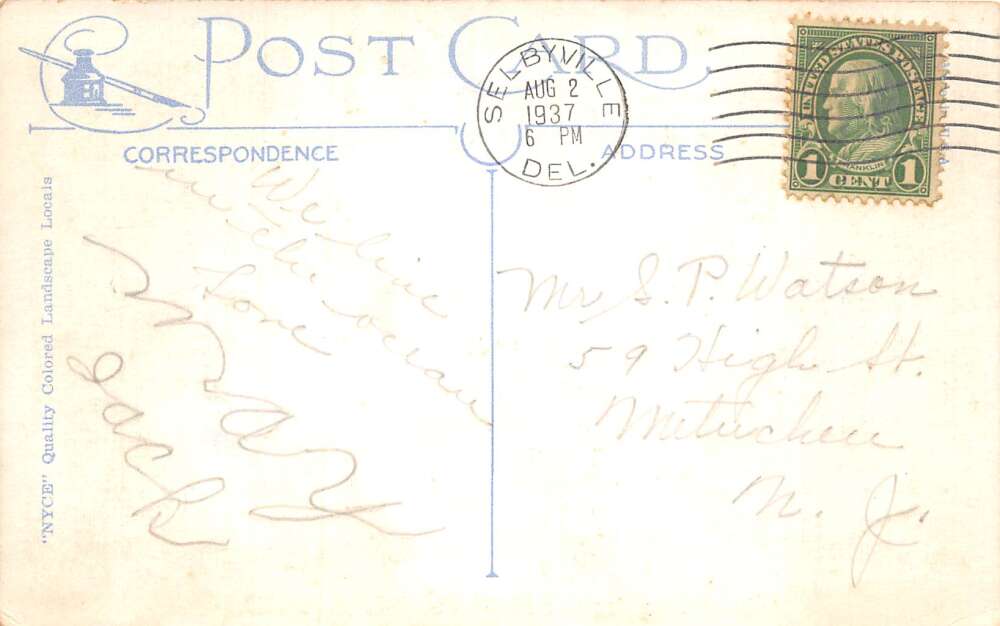 POST CARD
SELBYVILLE
AUG 2
1937
6 PM
DEL.
UNITED STATES POSTAGE
FRANKLIN
1 CENT 1
CORRESPONDENCE
ADDRESS
"NYCE" Quality Colored Landscape Locals
We live
in the ocean
Love
MAY
Jack
Mr S. P. Watson
59 High St.
Metuchen
N. J.